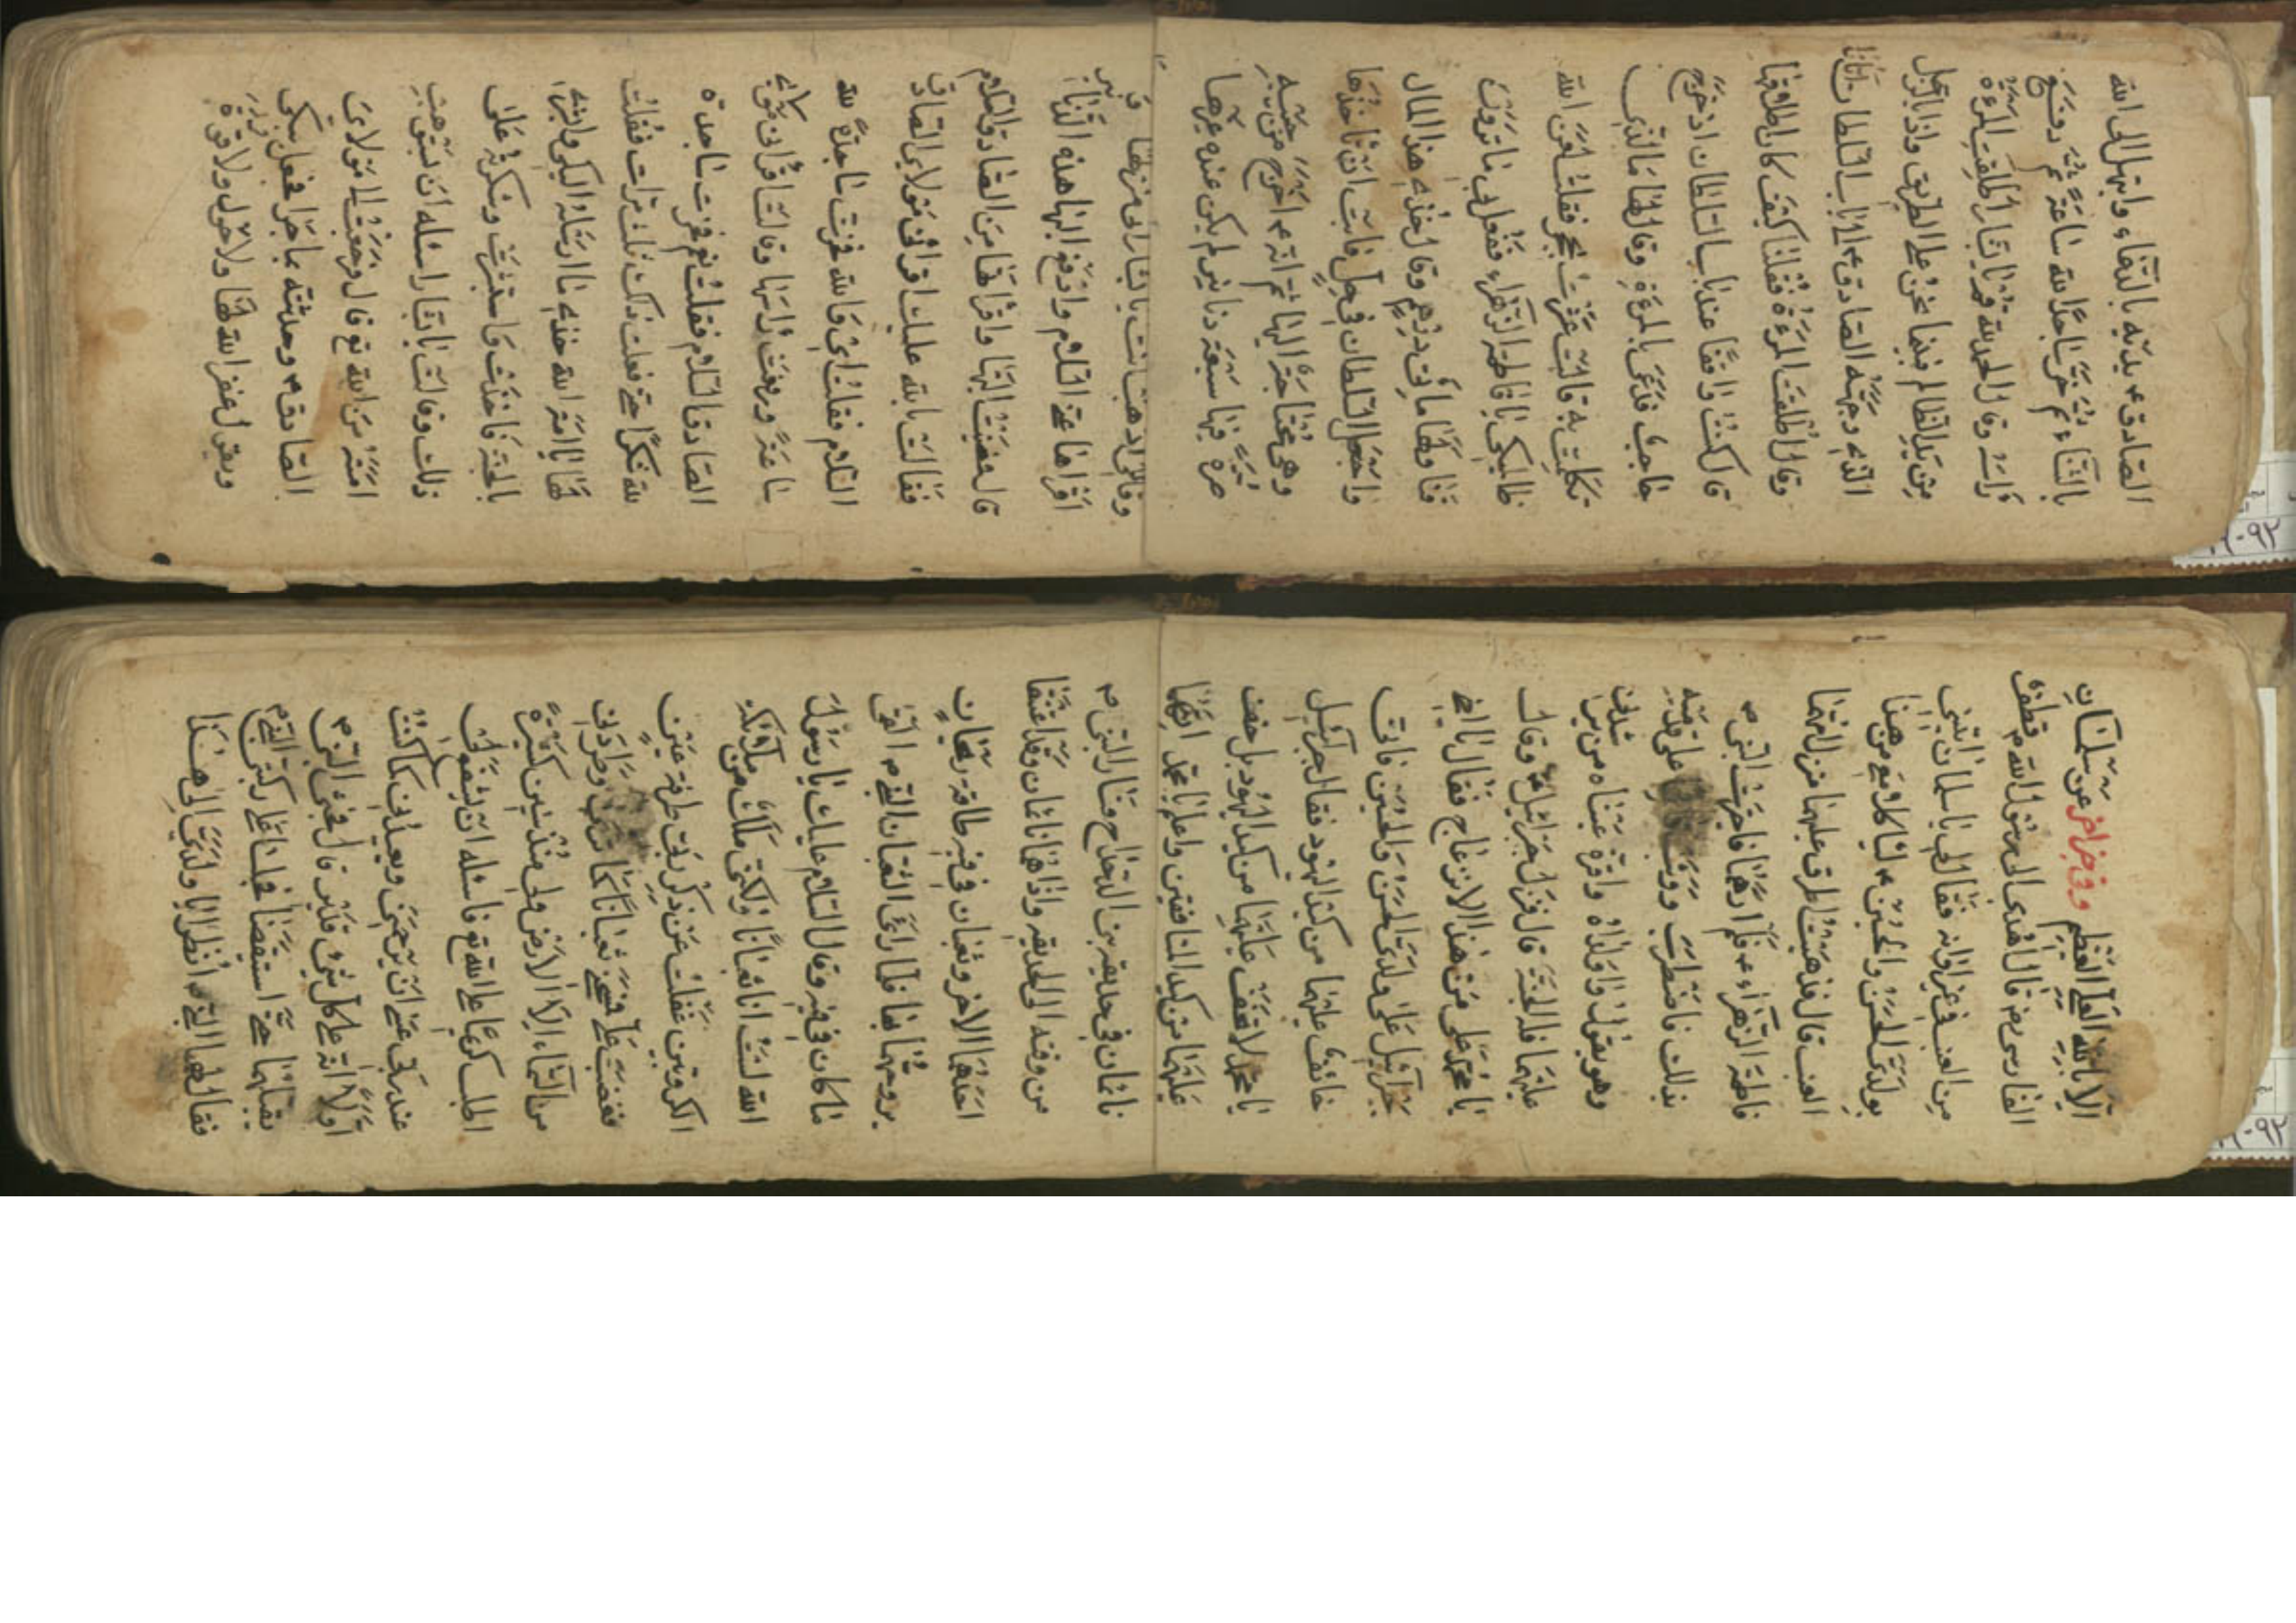 الصادق ء يديه بالدّعاء وابتهل الى الله
بالثناء ثم خرّ ساجدًا لله ساعةً ثم رفع
رأسه وقال الحمد لله قم يا بشار اطلقت المرءة
من يد الظالم فبينما نحن على الطريق واذا بالرجل
الذي وجهه الصادق ء الى باب السلطان اتانا
وقال اطلقت المرءة فقلنا كيف كان اطلاقها
قال كنت واقفًا عند باب السلطان اذ خرج
حاجب فدعى بالمرءة وقال لها ما الذي
تكلمت به قالت عثرت بحجر فقلت لعن الله
ظالميكي يا فاطمة الزهراء ففعل بي ما ترون
قال لها مأتي درهم وقال خذي هذا المال
واجعل السلطان في حلٍ فابت ان تاخذها
وهي محتاجة اليها ثم انه ء اخرج من جيبه
صرة فيها سبعة دنانير لم يكن عنده غيرها
وقال لي اذهب انت يا بشار الى منزلها
اقرأها عني السلام وادفع اليها هذه الدنانير
قال فمضيت اليها واقرأها من الصادق السلام
فقالت بالله عليك اقرأني مولاي الصادق
السلام فقلت اي والله فخرت ساجدةً لله
ساعةً ورفعت رأسها وقالت اقرأني مولاي
الصادق السلام فقلت نعم فخرت ساجدة
لله شكرًا حتى فعلت ذلك ثلث مرات فقلت
لها يا امة الله خذي ما ارسله اليكي وابشري
بالجنة فاخذت واستبشرت وشكرت على
ذلك وقالت يا بشار اسئله ان يستوهب
امته من الله تع قال ورجعت الى مولاي
الصادق ء وحدثته بما جرا فجعل يبكي
ويقول غفر الله لها ولا حول ولا قوة
الا بالله العلي العظيم وفي خبر اخر عن سلمان
الفارسي رض قال اهدى الى رسول الله ص قطف
من العنب في غير اوانه فقال لي يا سلمان ائتني
بولديّ الحسن والحسين ء لياكلا معي من هذا
العنب قال فذهبت اطرق عليهما منزل امهما
فاطمة الزهراء ء فلم ارهما فاخبرت النبي ص
بذلك فاضطرب ووثب على قدميه
وهو يقول واولداه واقرة عيناه من يرشدني
عليهما فله الجنة قال فنزل جبرائيل وقال
يا محمد على من هذا الانزعاج فقال يا اخي
جبرائيل على ولديّ الحسن والحسين فاني
خائف عليهما من كيد اليهود فقال جبرائيل
يا محمد لا تخف عليهما من كيد اليهود بل خف
عليهما من كيد المنافقين واعلم يا محمد انهما
نائمان في حديقة بني الدحداح وسار النبي ص
من وقته الى الحديقة واذا هما نائمان وقد اعتنقا
احدهما الاخر وثعبان في فيه طاقة ريحان
يروحهما بها فلما راى الثعبان النبي ص القى
ما كان في فيه وقال السلام عليك يا رسول
الله لست انا ثعبانًا ولكني ملك من ملائكة
الكروبين غفلت عن ذكر ربي طرفة عينٍ
فغضب علي فمسخني ثعبانًا كما ترى وطردني
من السماء الى الارض ولي منذ سنين كثيرةً
اطلب كريمًا على الله تع فاسئله ان يشفع لي
عند ربي عسى ان يرحمني ويعيدني كما كنت
اولًا انه على كل شيء قدير قال فجثى النبي ص
يقبلهما حتى استيقضا فجلسا على ركبتي النبي ص
فقال لهما النبي ص انظرا يا ولديّ الى هذا